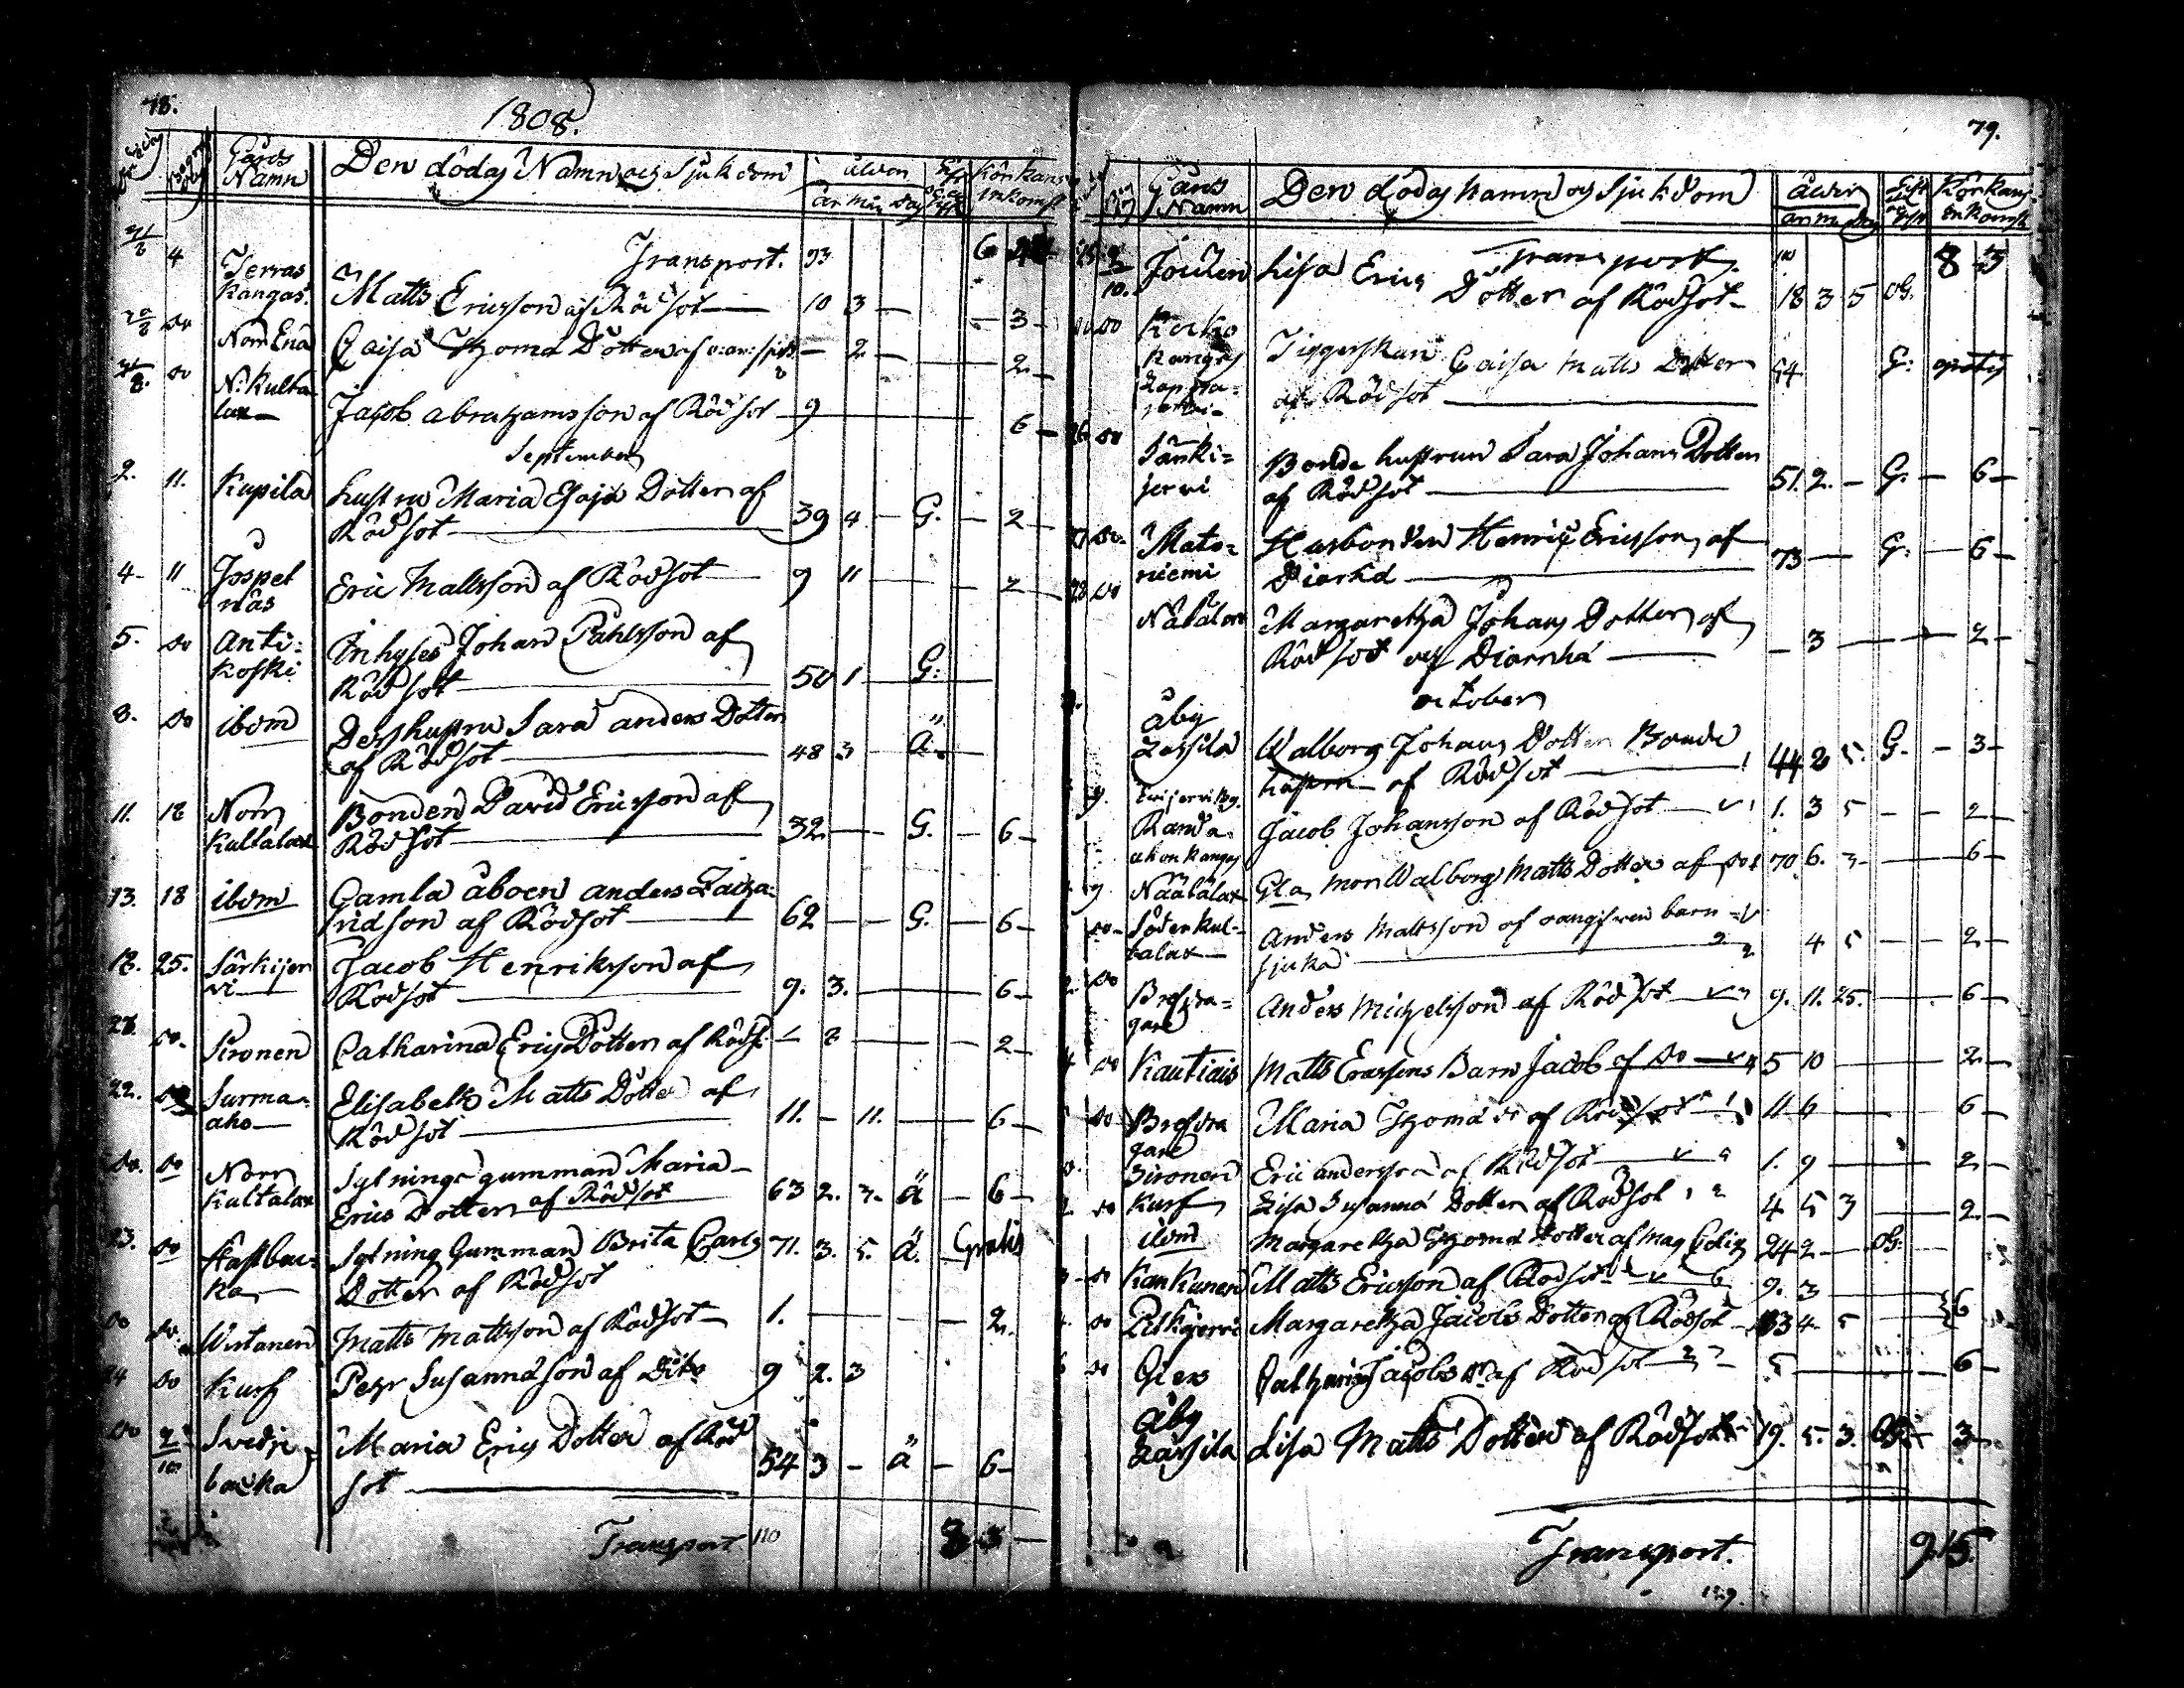 78.
1808.
Gårds Namn
Den dödas Namn och Sjukdom
ålder
år mån dag
Kÿrkans inkomst
Transport. 93
4 Terras kangas. Matts Ericsson af Rödsot 10 3 - 3 -
do Norr Enä Caisa Thomæ Dotter af - 2 - 2 -
do N: Kulta lax Jacob Abrahamsson af Rödsot 9 6 -
September
2. 11. Kupila hustru Maria Esajæ Dotter af
Rödsot 39 4 - G. - 2 -
4 - 11 Jospet näs Eric Mattsson af Rödsot 9 11 2 -
5. do Anti= koski Inhyses Johan Påhlsson af
Rödsot 50 1 - G:
8. do ibdm Dess hustru Sara Anders Dotter
af Rödsot 48 3
11. 18 Norr Kultalax Bonden David Ericsson af
Rödsot 32 - - G. - 6 -
13. 18 ibdm Gamla åboen Anders Zacha=
ridson af Rödsot 62 - - G. - 6 -
18. 25. Särkijer vi Jacob Henriksson af
Rödsot 9. 3. 6 -
do. Sironen Catharina Erics Dotter af Röds: 2 -
22. do Surma= aho Elisabeth Matts Dotter af
Rödsot 11. - 11. 6 -
do. do Norr Kultalax Sytnings gumman Maria
Erics Dotter af Rödsot 63 2. 3. ä - 6 -
23. do Hastbac= ka Sytning Gumman Brita Carls
Dotter af Rödsot 71. 3. 5. ä. - Gratis
do do. Wirtanen Matts Mattsson af Rödsot 1. 2.
24 do Kurf Pehr Susannæson af Dito 9 2. 3
do 2/10 Svedje= backa Maria Erics Dotter af Röd
sot 54 3 - ä - 6 -
Transport 110 8 3 -
79.
Gårds Namn
Den dödas namn och Sjukdom
ålder
år m dag
Kÿrkans inkomst
Transport. 110 8 3
Jouxen Lisa Erics
Dotter af Rödsot 18 3 5 OG.
do Tiggerskan Caisa Matts Dotter
af Rödsot 54 G:
26 do Särki= jervi Bonde hustrun Sara Johans Dotter
af Rödsot 51. 2. - G. - 6 -
27 do. Mato= niemi Husbonden Henric Ericsson af
Diarhé 73 - G: - 6 -
28 do Näätälax Margaretha Johans Dotter af
Rödsot och Diarrhé - 3 2 -
October
åby Walborg Johans Dotter Bonde
hustru af Rödsot 44 2 5. G. - 3 -
9. Randa= Jacob Johansson af Rödsot 1. 3 5 - 2 -
9 Näätälax Gla mor Walborg Matts Dotter af do 70 6. 3 - 6 -
do Söder Kul= talax Anders Mattsson af oangifven barn
sjuka 4 5 - 2 -
do Brofra= gare Anders Michelsson af Rödsot 9. 11. 25. 6 -
do Kautiais Matts Erssons Barn Jacob af do 5 10 2 -
do Brofra gare Maria Thomæ dr af Rödsot 11 6 6 -
Sironen Eric andersson af Rödsot 1. 9 2 -
do Kurf Lisa Susannæ Dotter af Rödsot 4 5 3 2 -
ibdm Margaretha Thomæ Dotter af mag Colig 24 2 - OG:
do Kankunen Matts Ericsson af Rödsot 9. 3
do Pitkäjervi Margaretha Jacobs Dotter af Rödsot 4 5 6
do Giers Catharina Jacobs dr af Rödsot 5 6 -
åby Lisa Matts Dotter af Rödsot 19. 5. 3. OG. 3 -
Transport. 9 15.
129.